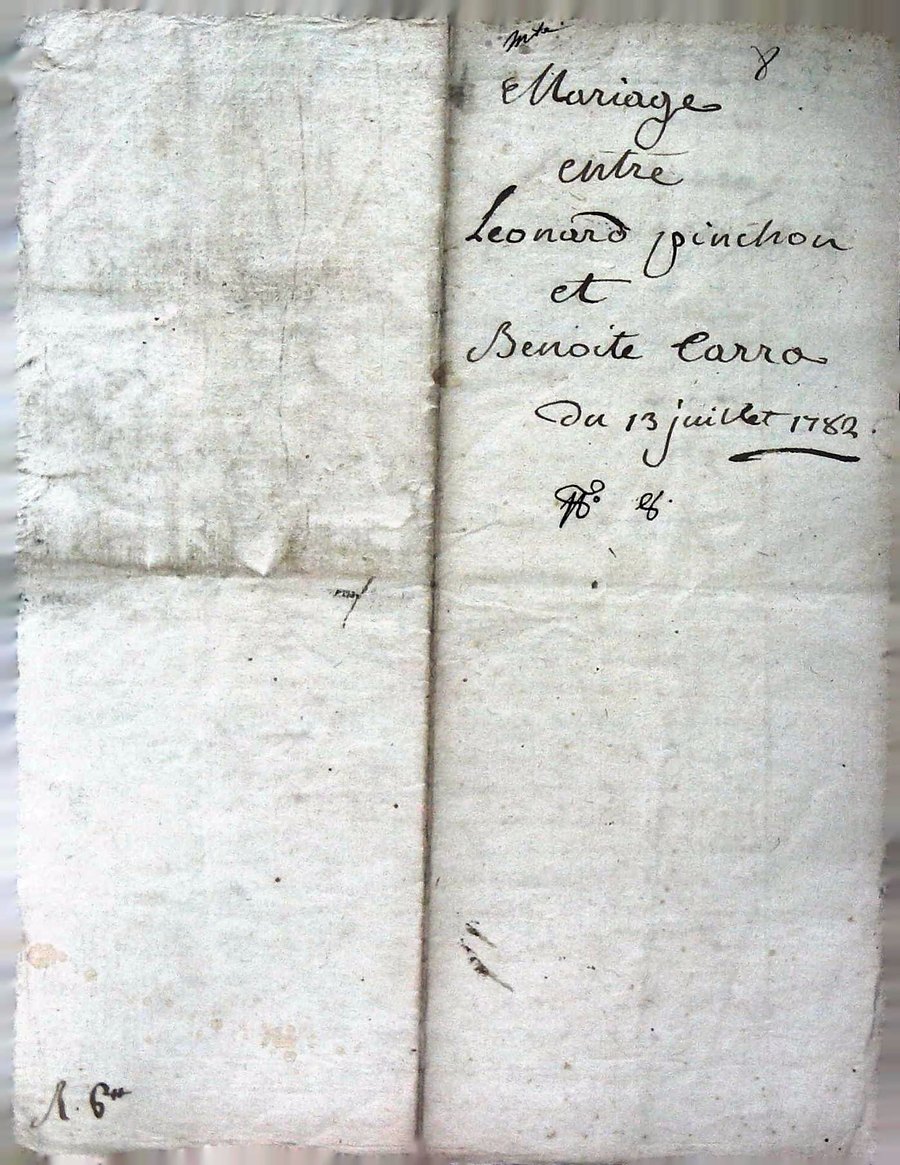 8
Mariage
entre
Leonard pinchon
et
Benoite Carra
du 13 juillet 1782.
N° 8.